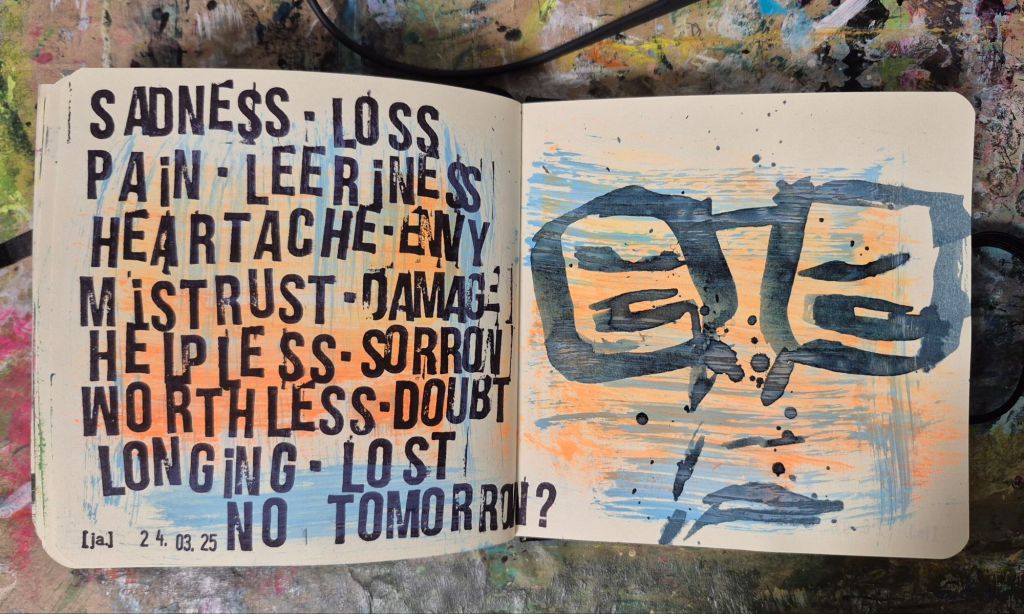 SADNE$S · LOSS
PAiN · LEERiNE$S
HEARTACHE · ENVY
MiSTRUST · DAMAGE
HELPLE$S · SORROW
WORTHLESS · DOUBT
LONGiNG · LOST
NO TOMORROW?
[ja.] 24. 03. 25